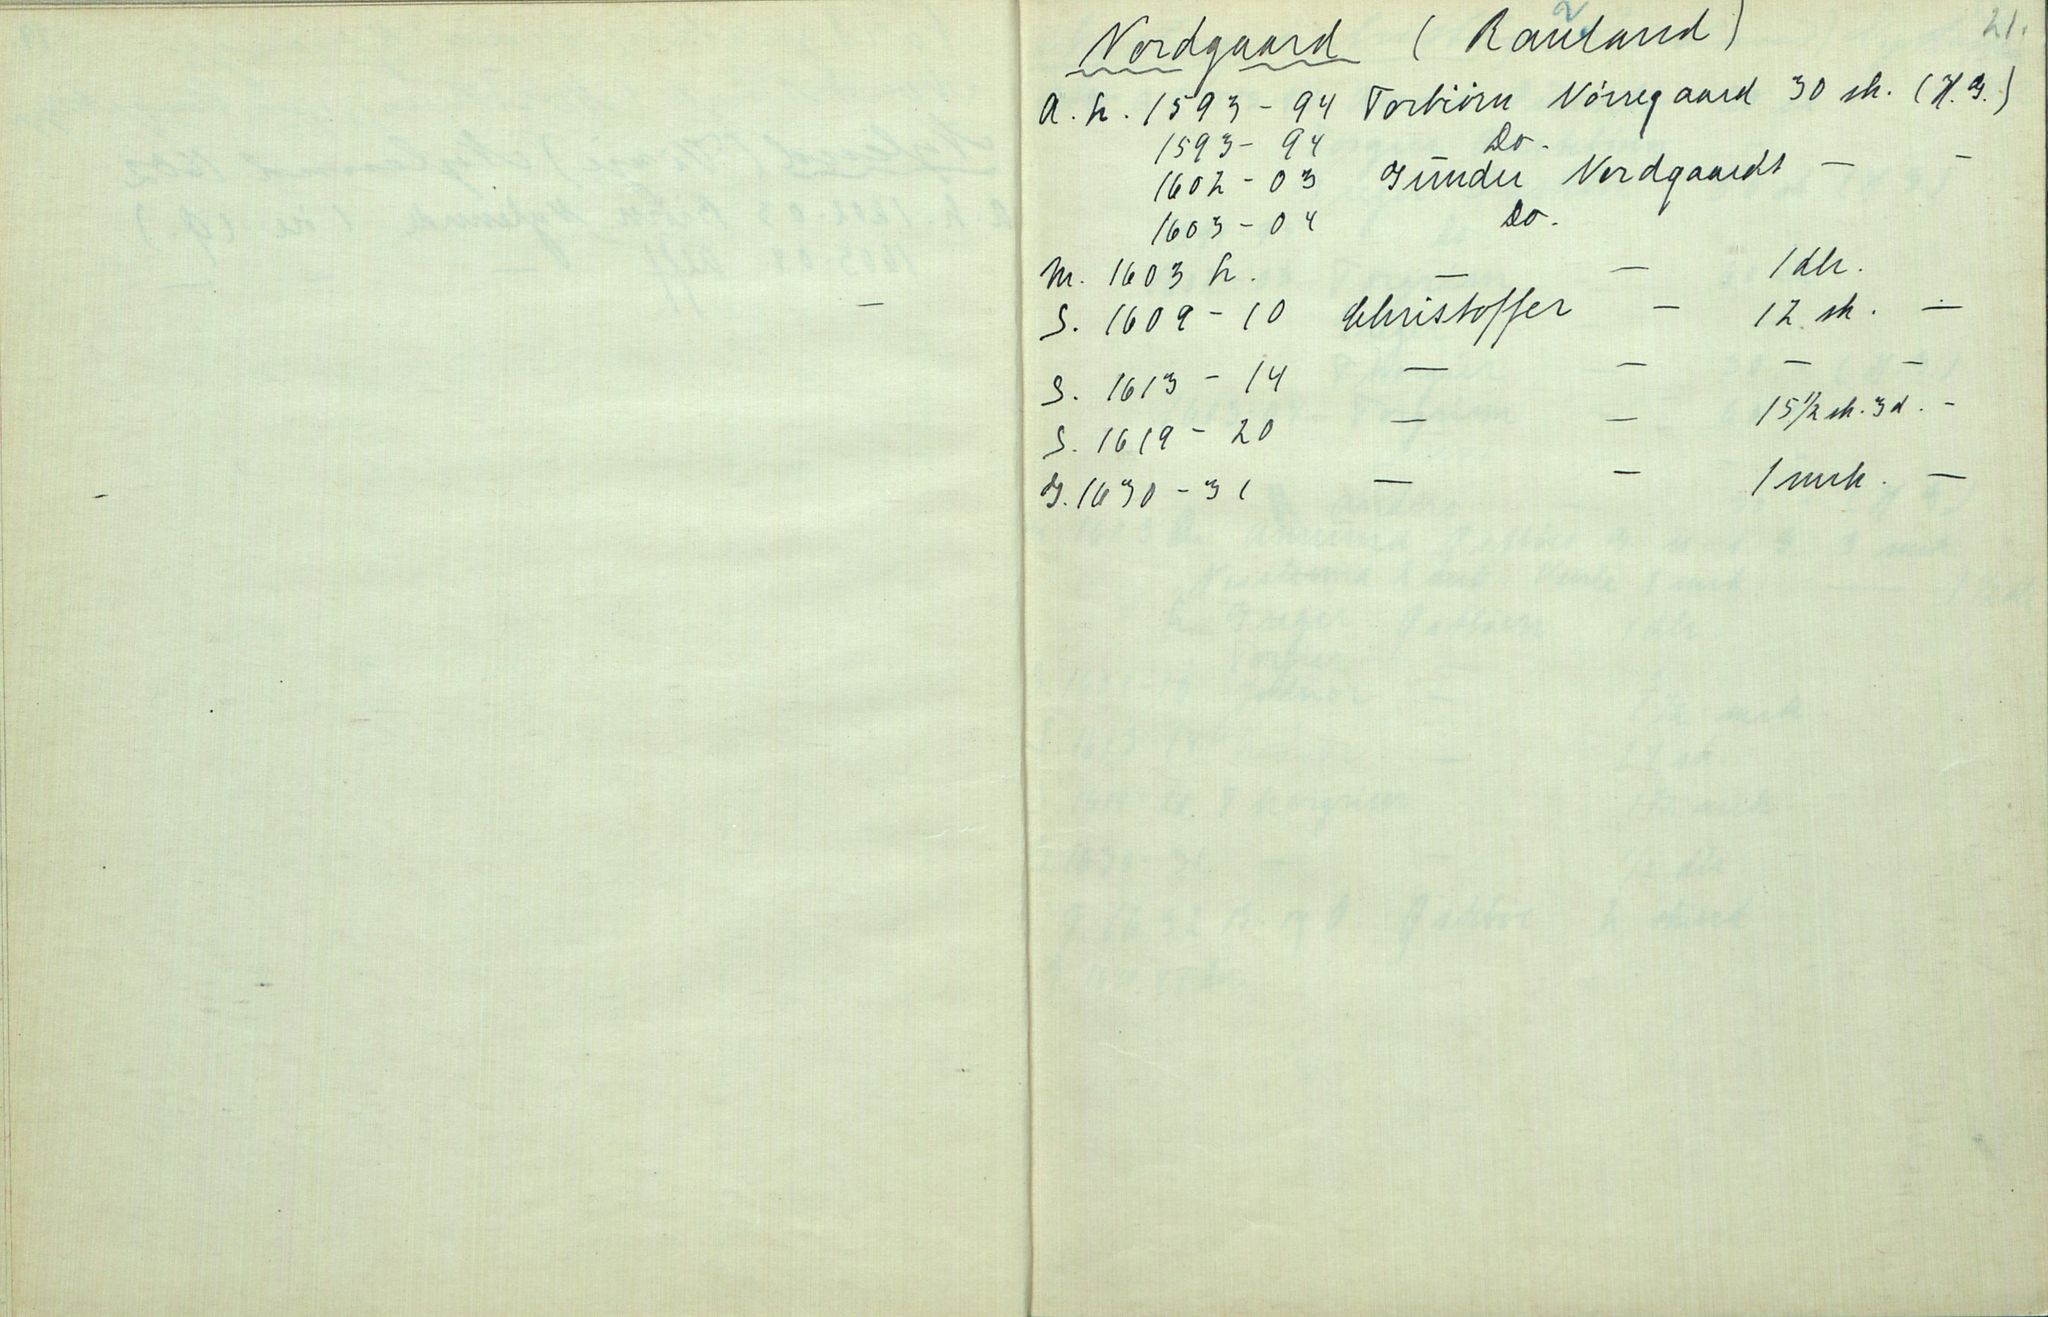 21.
Nordgaard (Rauland)
A. h. 1593-94 Torbiörn Nörregaard 30 sk. (H. G.)
1593-94 Do.
1602-03 Gunder Nordgaardt — —
1603-04 Do.
M. 1603 h. — — 1 dlr.
S. 1609-10 Christoffer — 12 sk. —
S. 1613-14 — — — —
S. 1619-20 — — 15 1/2 sk. 3 d. -
G. 1630-31 — — 1 mrk. —